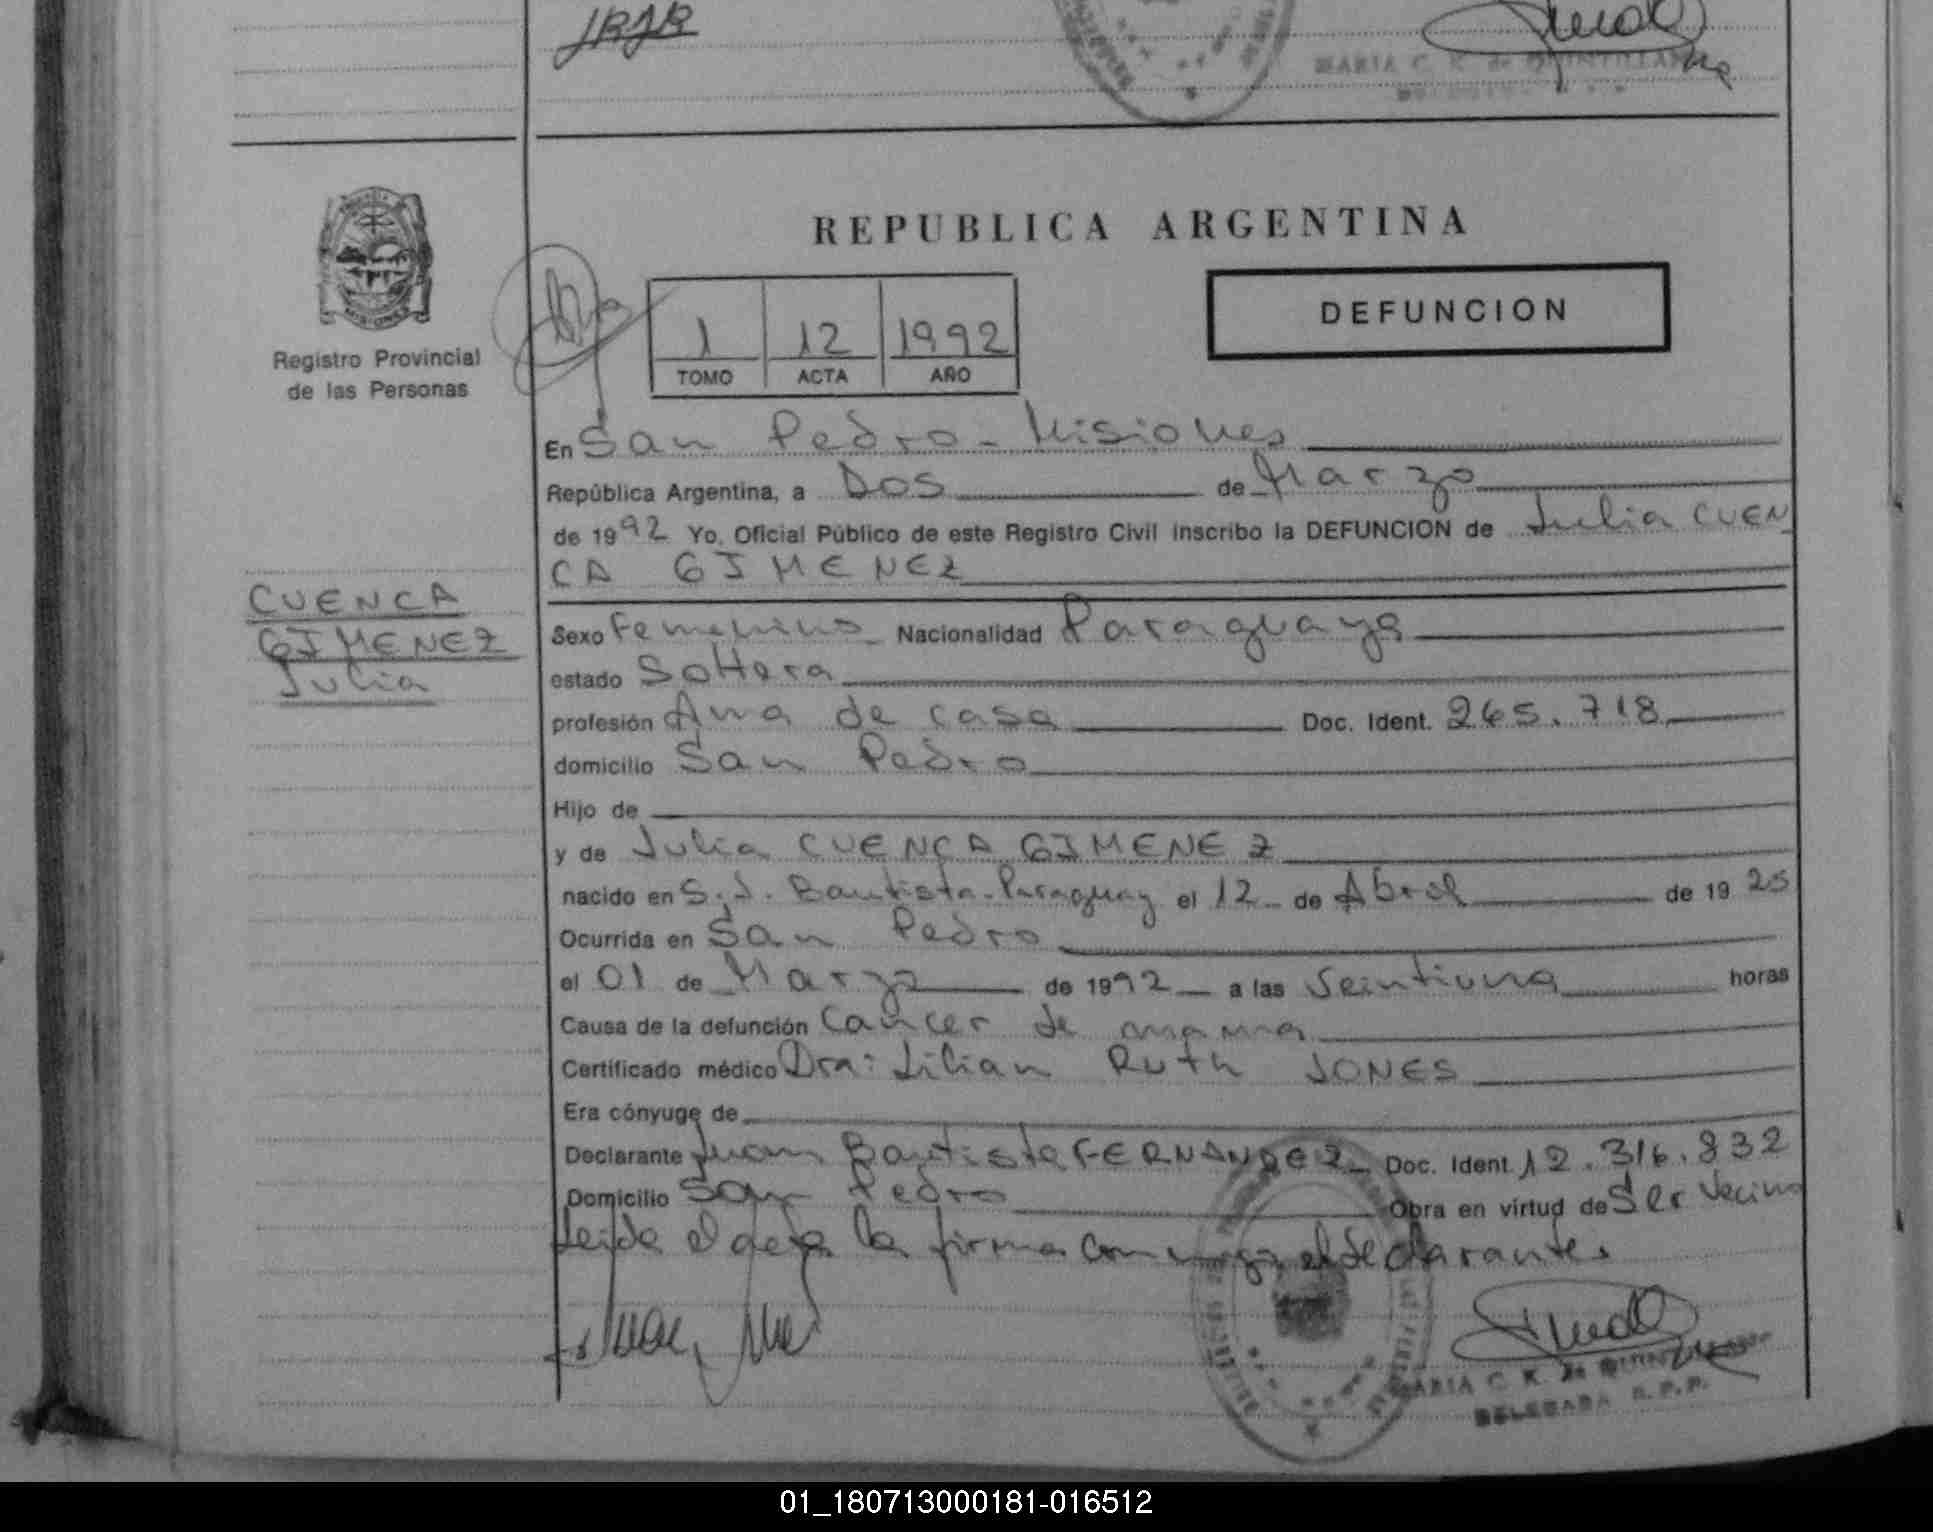 MARIA C. K. de QUINTILLAN
REPUBLICA ARGENTINA
MISIONES
Registro Provincial
de las Personas
1 12 1992
TOMO ACTA AÑO
DEFUNCION
En San Pedro - Misiones
República Argentina, a Dos de Marzo
de 1992 Yo, Oficial Público de este Registro Civil inscribo la DEFUNCION de Julia CUEN
CA GIMENEZ
CUENCA
GIMENEZ
Julia
Sexo Femenino Nacionalidad Paraguaya
estado Soltera
profesión Ama de casa Doc. Ident. 265.718
domicilio San Pedro
Hijo de
y de Julia CUENCA GIMENEZ
nacido en S.J. Bautista-Paraguay el 12 de Abril de 1925
Ocurrida en San Pedro
el 01 de Marzo de 1992 a las Veintiuna horas
Causa de la defunción Cancer de mama
Certificado médico Dra: Lilian Ruth JONES
Era cónyuge de
Declarante Juan Bautista FERNANDEZ Doc. Ident. 12.316.832
Domicilio San Pedro Obra en virtud de Ser Vecino
Leida el acta la firma conmigo el declarante.
MARIA C. K. de
DELEGADA R.P.P.
01_180713000181-016512